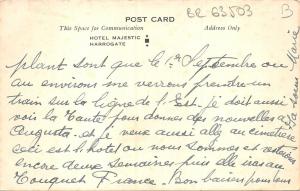 BR 63503 B
POST CARD
This Space for Communication Address Only
HOTEL MAJESTIC
HARROGATE
plant sont que le 1er Septembre ou
au environs me verrons prendre un
train sur la ligne de l'Est. Je doit aussi
vois la tante pour donnes des nouvelles a
Augusta. et je veux aussi allez au cimetiere
ceci est l'hotel ou nous sommes et restons
encore deux semaines puis elle iras au
Touquet France. Bon baisers pour tous
ta soeur Marie